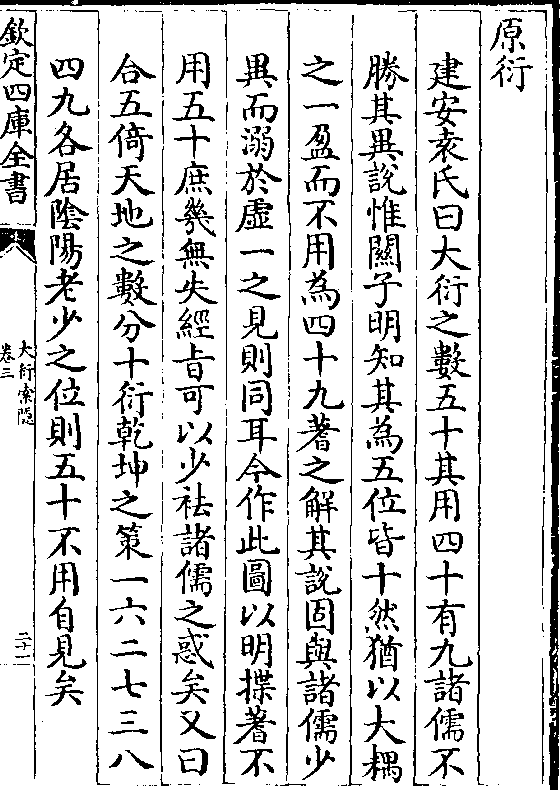 原衍
建安袁氏曰大衍之數五十其用四十有九諸儒不
勝其異說惟關子明知其為五位皆十然猶以大耦
之一盈而不用為四十九蓍之解其說固與諸儒少
異而溺於虛一之見則同耳今作此圖以明揲蓍不
用五十庶幾無失經旨可以少袪諸儒之惑矣又曰
合五倚天地之數分十衍乾坤之策一六二七三八
四九各居陰陽老少之位則五十不用自見矣
欽定四庫全書
大衍索隠
卷三
二十一